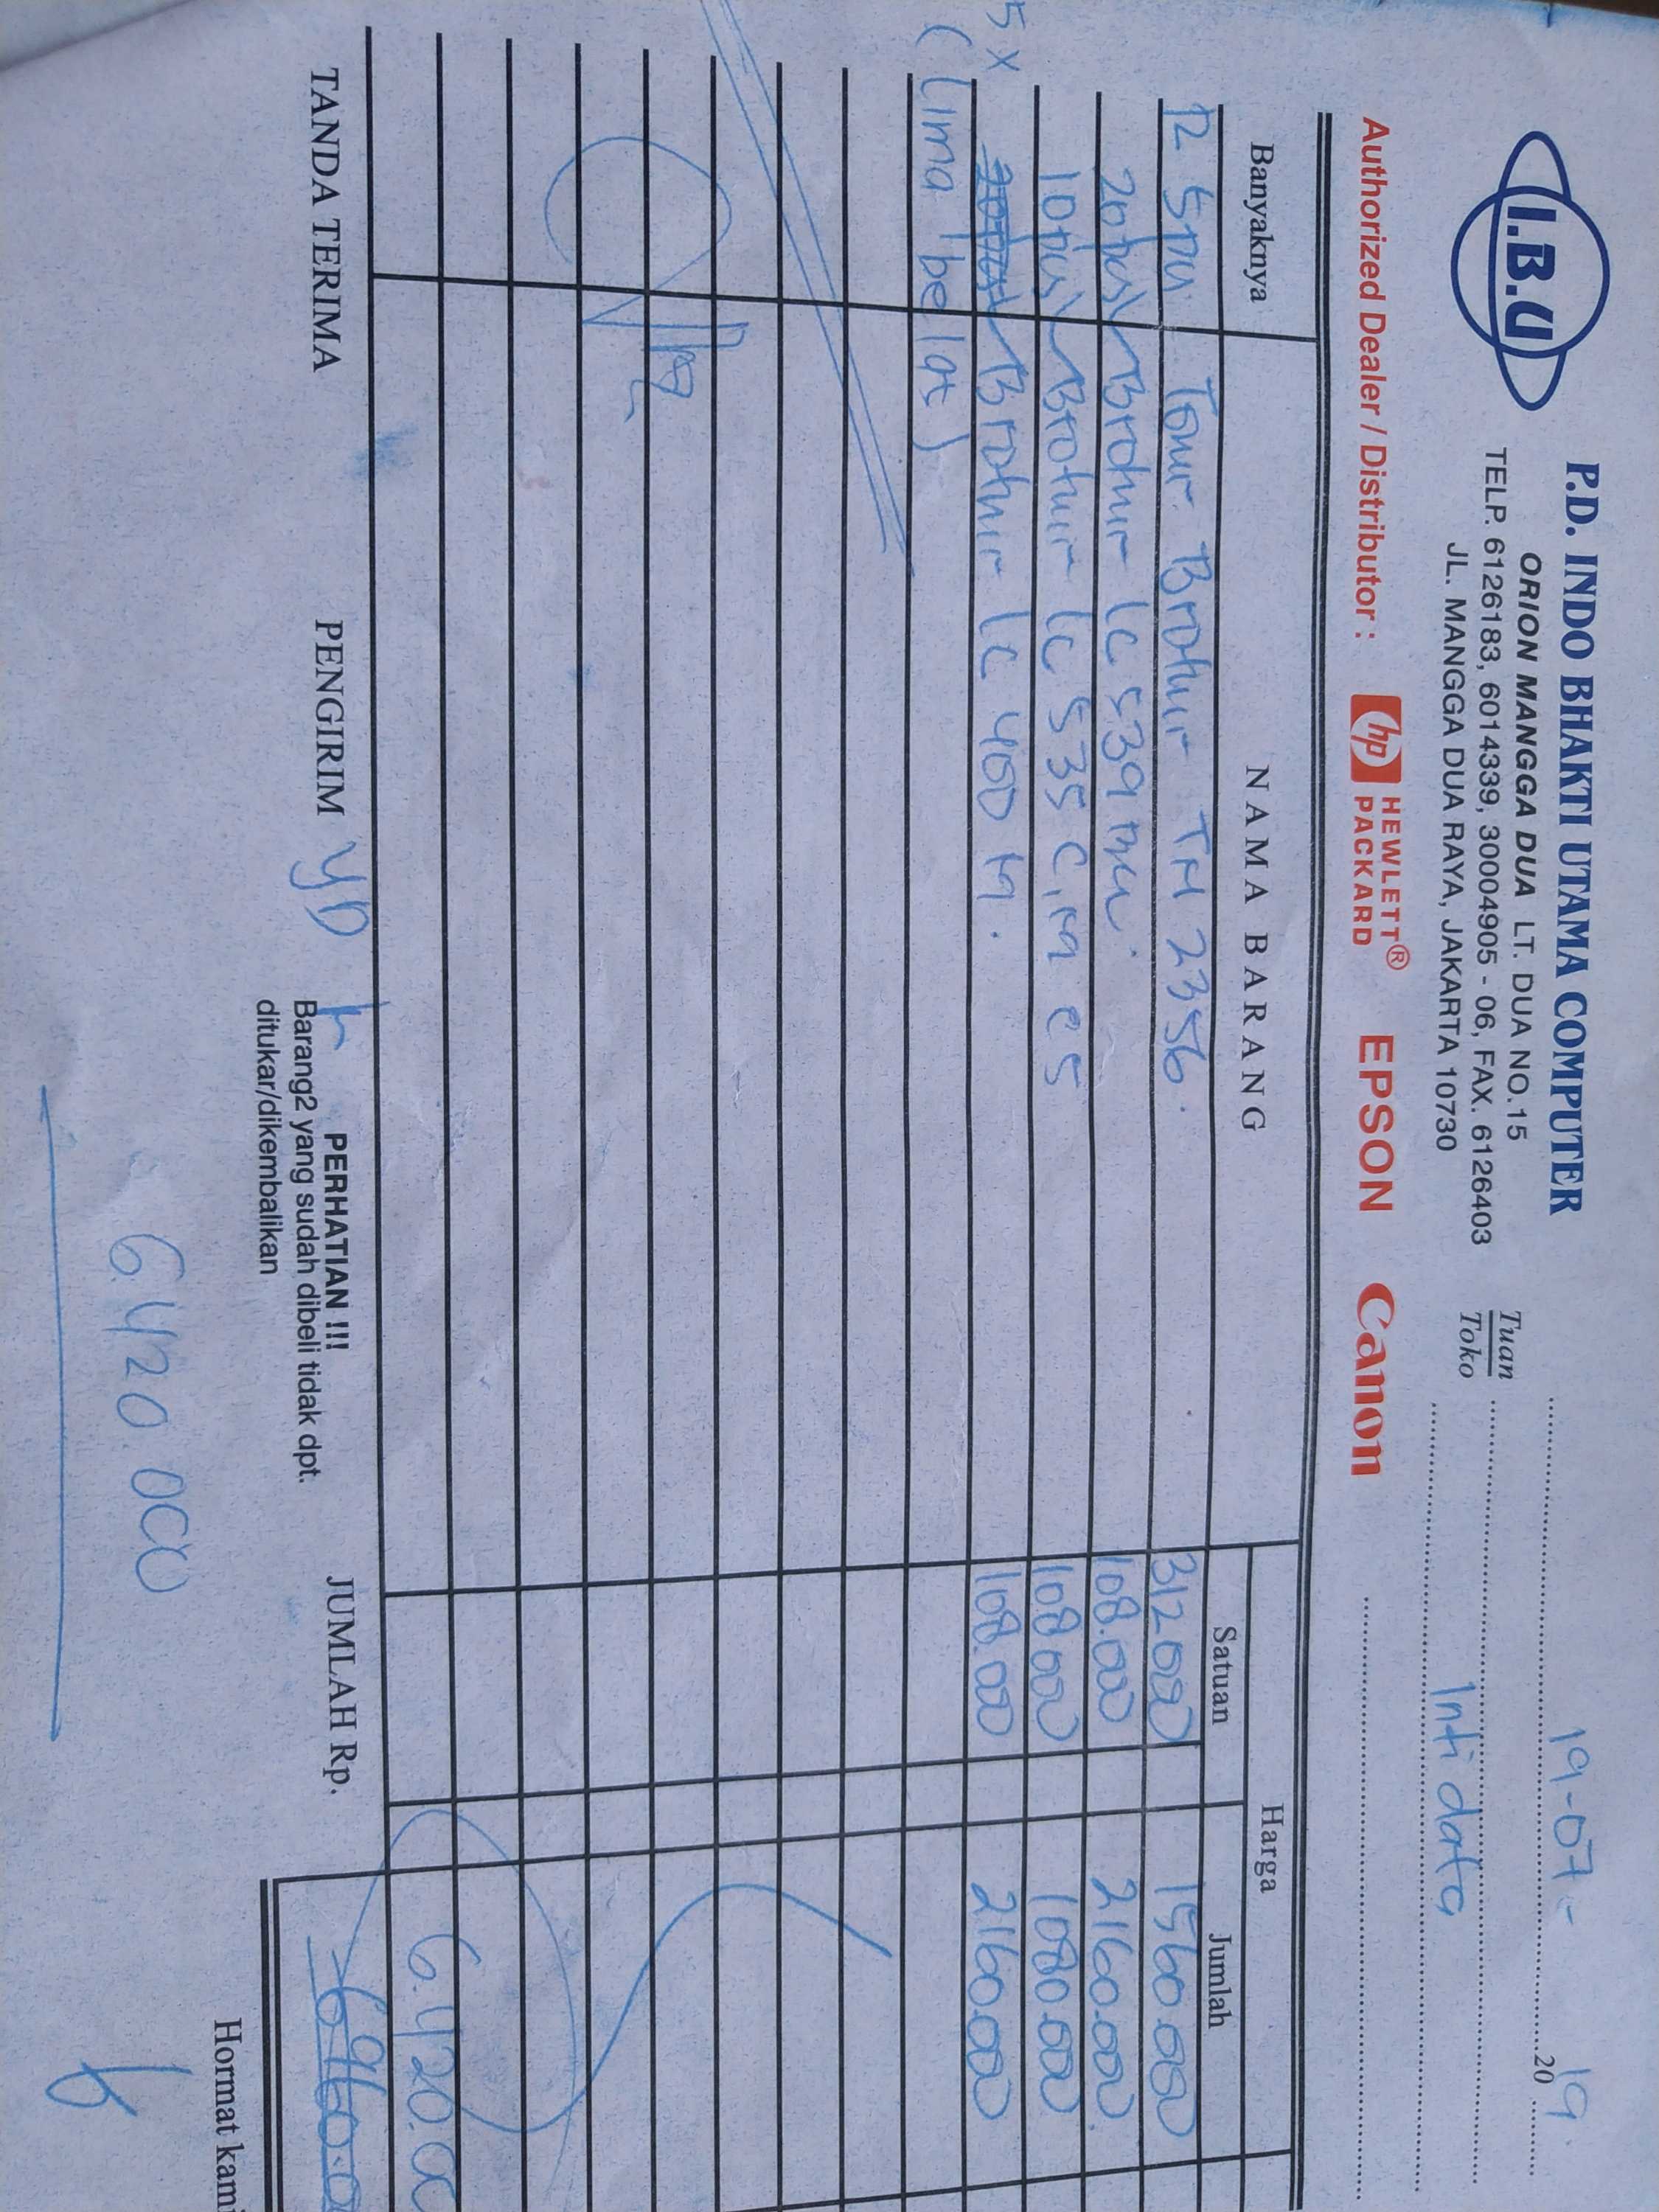 I.B.U
P.D. INDO BHAKTI UTAMA COMPUTER
ORION MANGGA DUA LT. DUA NO.15
TELP. 6126183, 6014339, 30004905 - 06, FAX. 6126403
JL. MANGGA DUA RAYA, JAKARTA 10730
19-07- 2019.
Tuan
Toko
Inti data
Authorized Dealer / Distributor : hp HEWLETT® PACKARD EPSON Canon
Banyaknya NAMA BARANG Harga
Satuan Jumlah
Toner Brother TN 2356. 312.000 1560.000
Brother LC 539 312.000 108.000 2160.000
Brother LC 535 C, M 108.000 1080.000
5 x Brother LC 400 M. 108.000 2160.000
(lima belas)
6.420.00
TANDA TERIMA PENGIRIM JUMLAH Rp.
PERHATIAN !!!
Barang2 yang sudah dibeli tidak dpt.
ditukar/dikembalikan
Hormat kami
6.420.000